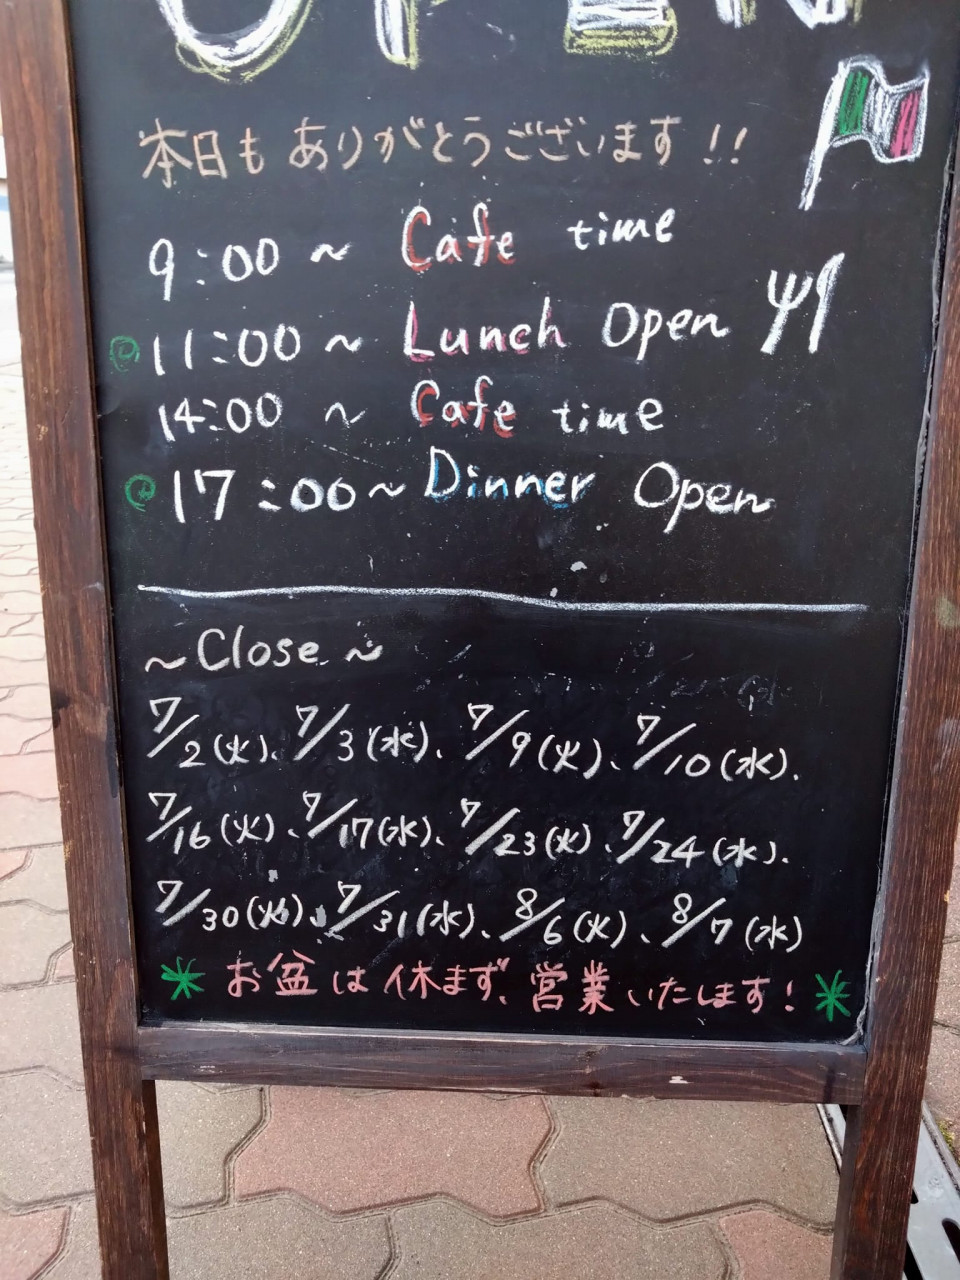 OPEN
本日も ありがとうございます!!
9:00 ~ Cafe time
11:00 ~ Lunch Open
14:00 ~ Cafe time
17:00~ Dinner Open
~Close~
7/2(火)、7/3(水)、7/9(火)、7/10(水)、
7/16(火)、7/17(水)、7/23(火)、7/24(水)、
7/30(火)、7/31(水)、8/6(火)、8/7(水)
お盆は休まず、営業いたします!